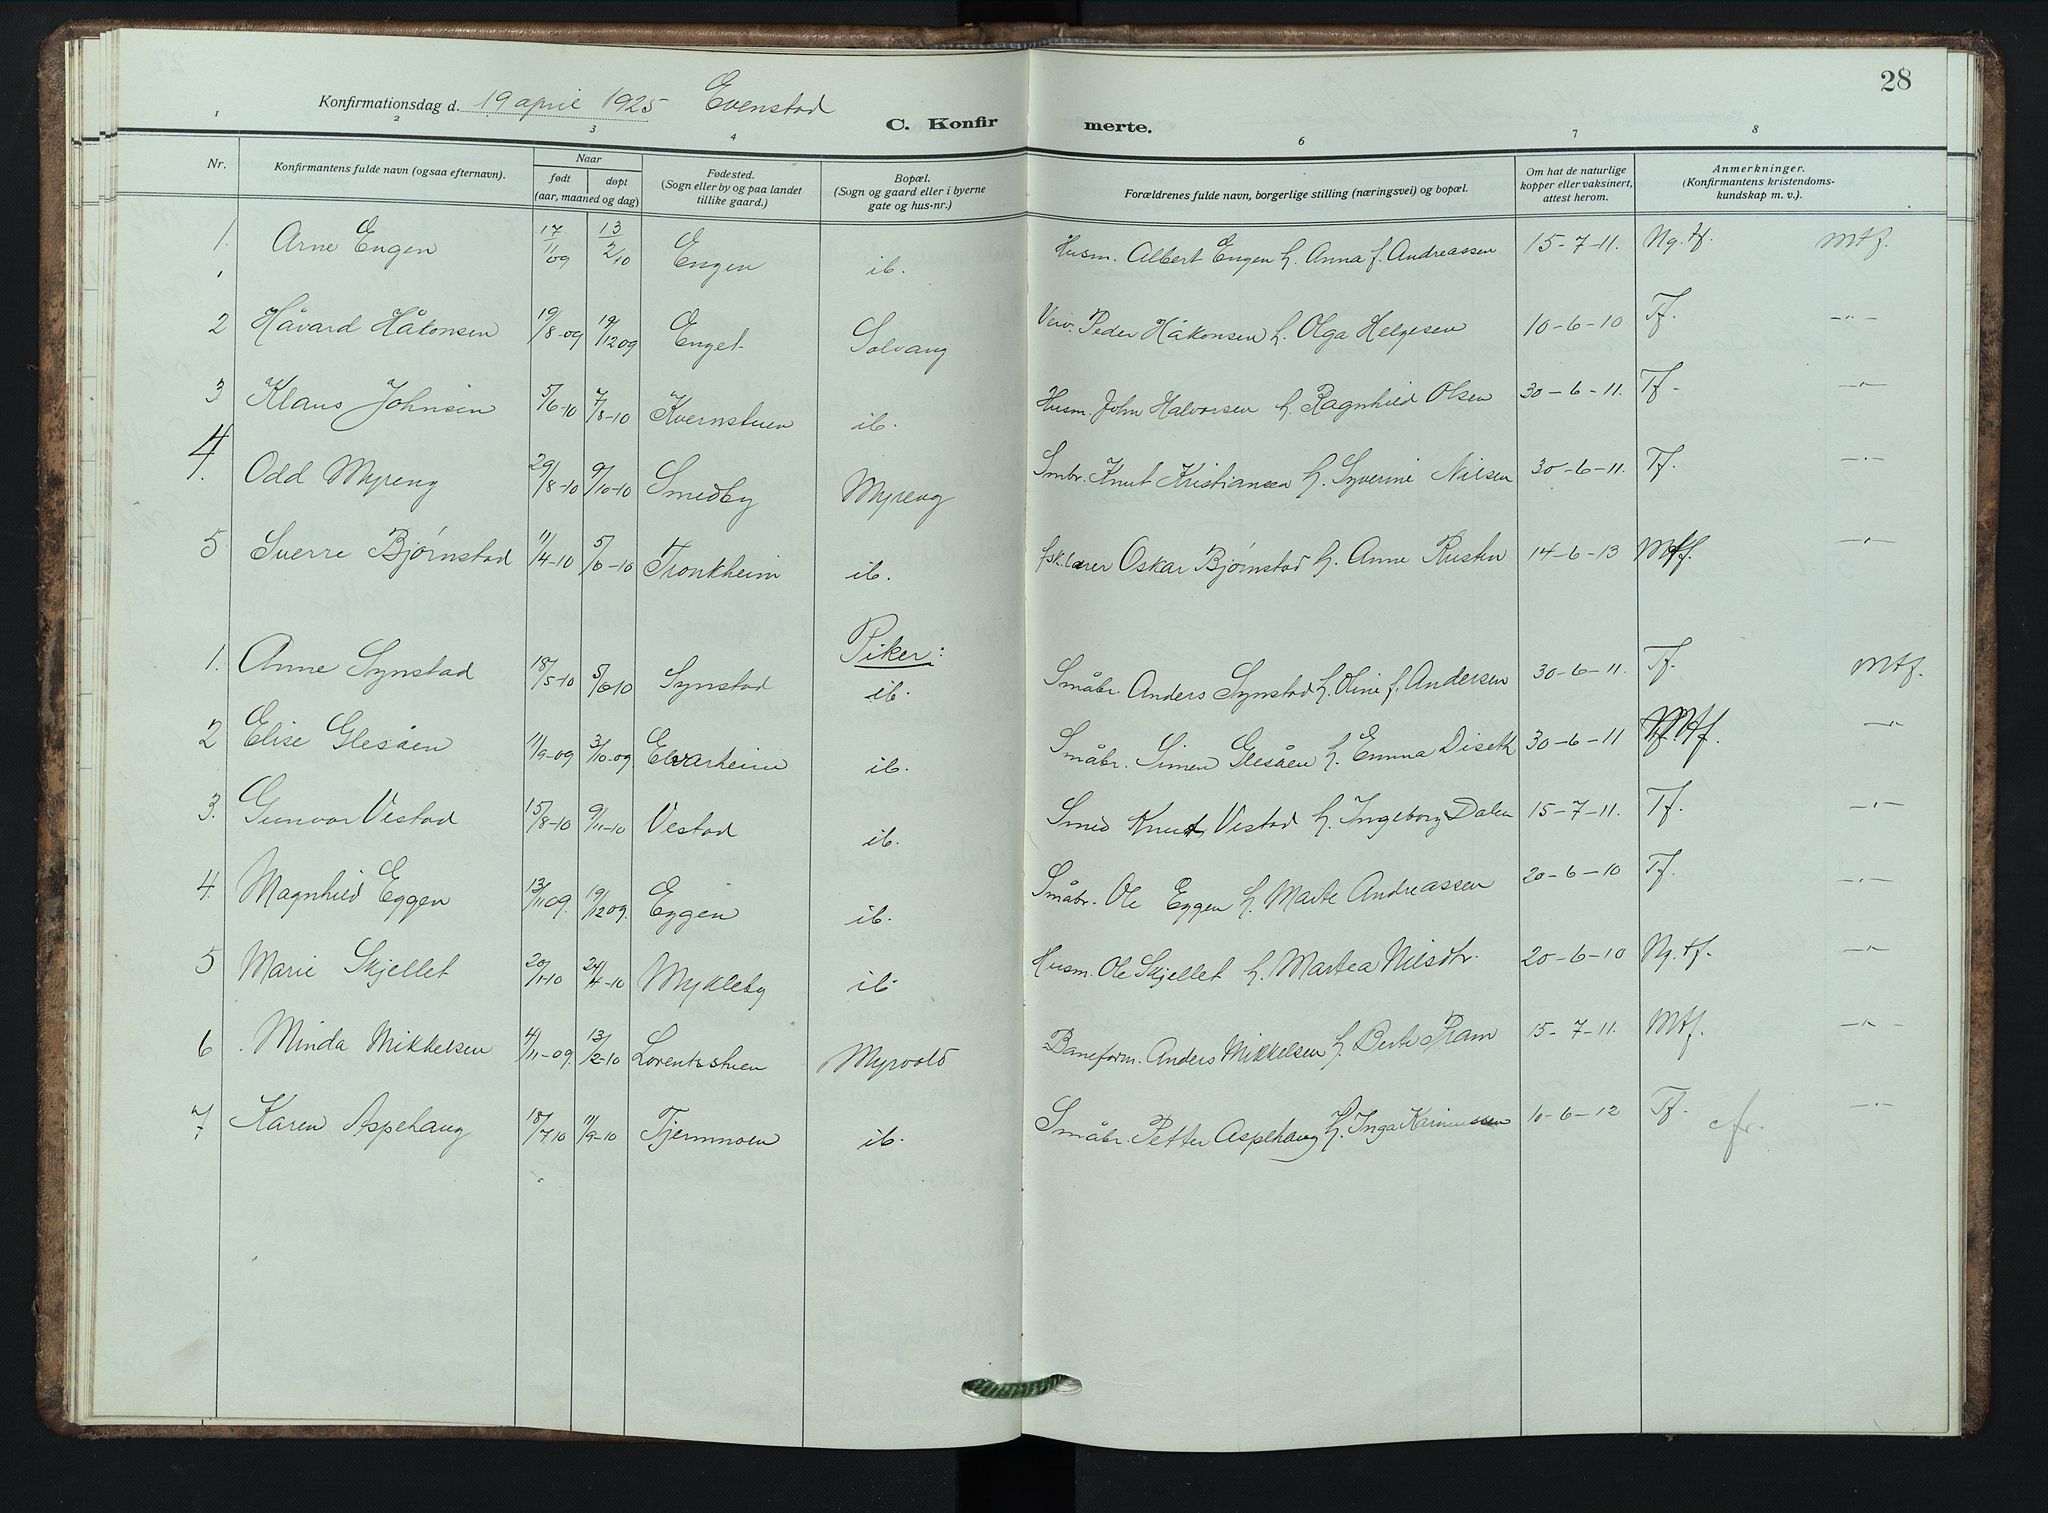 28
Konfirmationsdag d. 19 april 1925 Evenstad
C. Konfir merte.
1 2 3 4 6 7 8
Nr. Konfirmantens fulde navn (ogsaa efternavn). Naar født døpt (aar, maaned og dag) Fødested. (Sogn eller by og paa landet tillike gaard.) Bopæl. (Sogn og gaard eller i byerne gate og hus-nr.) Forældrenes fulde navn, borgerlige stilling (næringsvei) og bopæl. Om hat de naturlige kopper eller vaksinert, attest herom. Anmerkninger. (Konfirmantens kristendoms-kundskap m. v.).
1. Arne Engen 17/11 09 13/2 10 Engen ib. Husm. Albert Engen h. Anna f. Andreassen 15-7-11. Ng. tf. Mtf.
2 Håvard Håkonsen 19/8-09 19/12 09 Enget Solvang Peder Håkonsen h. Olga Helgesen 10-6-10 Tf. -"-
3 Klaus Johnsen 5/6-10 7/8-10 Kvernstuen ib. Husm. John Halvorsen h. Ragnhild Olsen 30-6-11. Tf. -"-
4. Odd Myreng 29/8-10 9/10-10 Smedby Myreng Smbr. Knut Kristiansen h. Syverine Nilsen 30-6-11. Tf. -"-
5 Sverre Bjørnstad 11/4-10 5/6-10 Tronkheim ib. fsk.lærer Oskar Bjørnstad h. Anne Rusten 14-6-13 Mtf.
Piker:
1. Anne Synstad 18/5-10 5/6 10 Synstad ib. Småbr. Anders Synstad h. Oline f. Andersen 30-6-11. Tf. Mtf.
2 Elise Glesåen 11/9-09 3/10-09 Elvarheim ib. Småbr. Simen Glesåen h. Emma Diseth 30-6-11 Mtf. -"-
3. Gunvor Vestad 15/8-10 9/11-10 Vestad ib. Smed Knut Vestad h. Ingeborg Dalen 15-7-11. Tf. -"-
4. Magnhild Eggen 13/11 09. 19/12 09. Eggen ib. Småbr. Ole Eggen h. Marte Andreassen 20-6-10 Tf. -"-
5 Marie Skjellet 20/1-10 24/4-10 Mykleby ib. Husm. Ole Skjellet h. Martea Nilsdtr. 20-6-10 Ng. tf. -"-
6. Minda Mikkelsen 4/11-09. 13/2-10 Lorentsstuen Myrvold Baneform. Anders Mikkelsen h. Berte Ram 15-7-11. Mtf. -"-
7 Karen Aspehaug 18/7 10 11/9-10 Tjernmoen ib. Småbr. Petter Aspehaug h. Inga 10-6-12 Tf. cfr. -"-